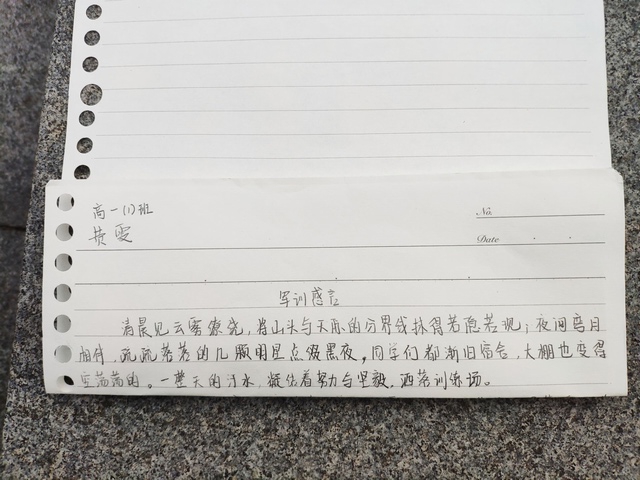 高一(1)班
No.
黄雯
Date
军训感言
清晨见云雾缭绕，将山头与天际的分界线抹得若隐若现；夜间弯月
相伴，疏疏落落的几颗明星点缀黑夜。同学们都渐归宿舍，大棚也变得
空荡荡的。一整天的汗水，凝结着努力与坚毅，洒落训练场。